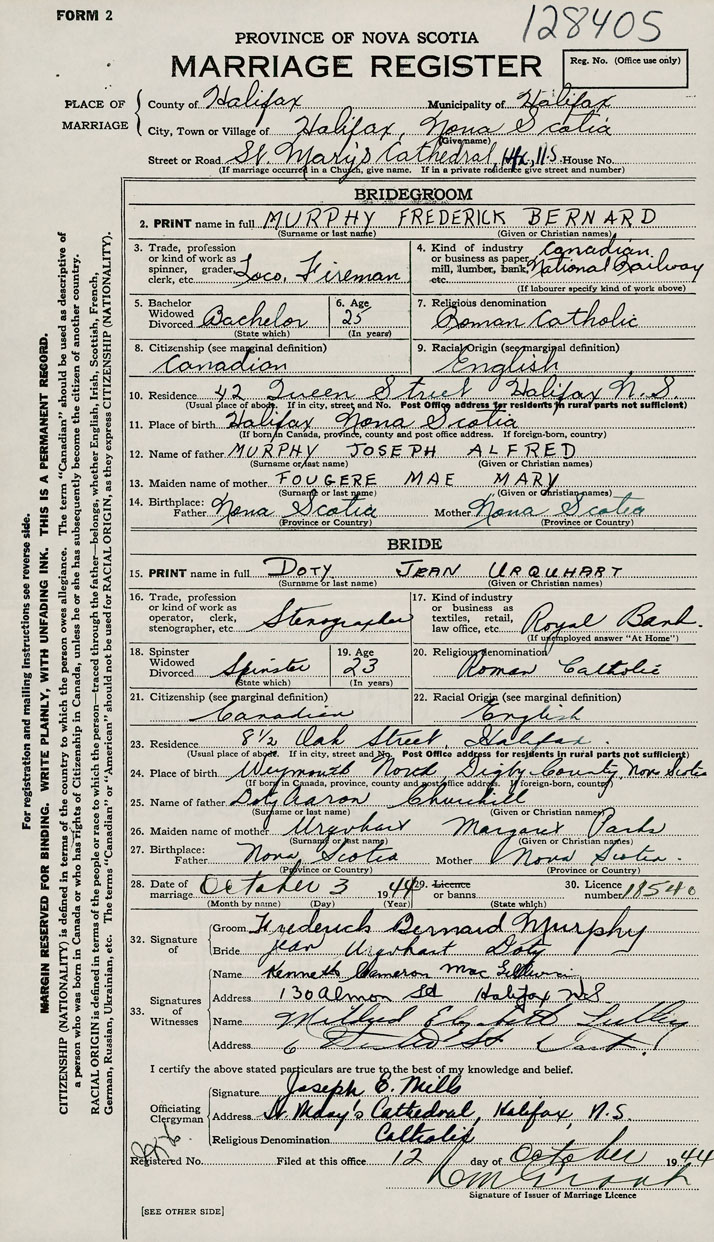 FORM 2
128405
PROVINCE OF NOVA SCOTIA
MARRIAGE REGISTER
Reg. No. (Office use only)
PLACE OF MARRIAGE
County of Halifax Municipality of Halifax
City, Town or Village of Halifax, Nova Scotia
(Give name)
Street or Road St. Mary's Cathedral, Hfx, N.S. House No.
(If marriage occurred in a Church, give name. If in a private residence give street and number)
BRIDEGROOM
2. PRINT name in full MURPHY FREDERICK BERNARD
(Surname or last name) (Given or Christian names)
3. Trade, profession or kind of work as spinner, grader, clerk, etc. Loco. Fireman
4. Kind of industry or business as paper mill, lumber, bank, etc. Canadian National Railway
(If labourer specify kind of work above)
5. Bachelor Widowed Divorced Bachelor
(State which)
6. Age 25
(In years)
7. Religious denomination
Roman Catholic
8. Citizenship (see marginal definition)
Canadian
9. Racial Origin (see marginal definition)
English
10. Residence 42 Queen Street Halifax N.S.
(Usual place of abode. If in city, street and No. Post Office address for residents in rural parts not sufficient)
11. Place of birth Halifax Nova Scotia
(If born in Canada, province, county and post office address. If foreign-born, country)
12. Name of father MURPHY JOSEPH ALFRED
(Surname or last name) (Given or Christian names)
13. Maiden name of mother FOUGERE MAE MARY
(Surname or last name) (Given or Christian names)
14. Birthplace: Father Nova Scotia Mother Nova Scotia
(Province or Country) (Province or Country)
BRIDE
15. PRINT name in full DOTY JEAN URQUHART
(Surname or last name) (Given or Christian names)
16. Trade, profession or kind of work as operator, clerk, stenographer, etc. Stenographer
17. Kind of industry or business as textiles, retail, law office, etc. Royal Bank.
(If unemployed answer "At Home")
18. Spinster Widowed Divorced Spinster
(State which)
19. Age 23
(In years)
20. Religious denomination
Roman Catholic
21. Citizenship (see marginal definition)
Canadian
22. Racial Origin (see marginal definition)
English
23. Residence 8 1/2 Oak Street, Halifax.
(Usual place of abode. If in city, street and No. Post Office address for residents in rural parts not sufficient)
24. Place of birth Weymouth North, Digby County, Nova Scotia
(If born in Canada, province, county and post office address. If foreign-born, country)
25. Name of father Doty Aaron Churchill
(Surname or last name) (Given or Christian names)
26. Maiden name of mother Urquhart Margaret Parks
(Surname or last name) (Given or Christian names)
27. Birthplace: Father Nova Scotia Mother Nova Scotia.
(Province or Country) (Province or Country)
28. Date of marriage October 3 1944
(Month by name) (Day) (Year)
29. Licence or banns
(State which)
30. Licence number 18540
32. Signature of
Groom Frederick Bernard Murphy
Bride Jean Urquhart Doty
33. Signatures of Witnesses
Name Kenneth Cameron Mac
Address 130 Almon St Halifax NS
Name Mildred Elizabeth
Address 6 St Dart.
I certify the above stated particulars are true to the best of my knowledge and belief.
Officiating Clergyman
Signature Joseph E. Mills
Address St. Mary's Cathedral, Halifax, N.S.
Religious Denomination Catholic
Registered No. Filed at this office 12 day of October 1944
Signature of Issuer of Marriage Licence
[SEE OTHER SIDE]
For registration and mailing instructions see reverse side.
MARGIN RESERVED FOR BINDING. WRITE PLAINLY, WITH UNFADING INK. THIS IS A PERMANENT RECORD.
CITIZENSHIP (NATIONALITY) is defined in terms of the country to which the person owes allegiance. The term "Canadian" should be used as descriptive of
a person who was born in Canada or who has rights of Citizenship in Canada, unless he or she has subsequently become the citizen of another country.
RACIAL ORIGIN is defined in terms of the people or race to which the person—traced through the father—belongs, whether English, Irish, Scottish, French,
German, Russian, Ukrainian, etc. The terms "Canadian" or "American" should not be used for RACIAL ORIGIN, as they express CITIZENSHIP (NATIONALITY).